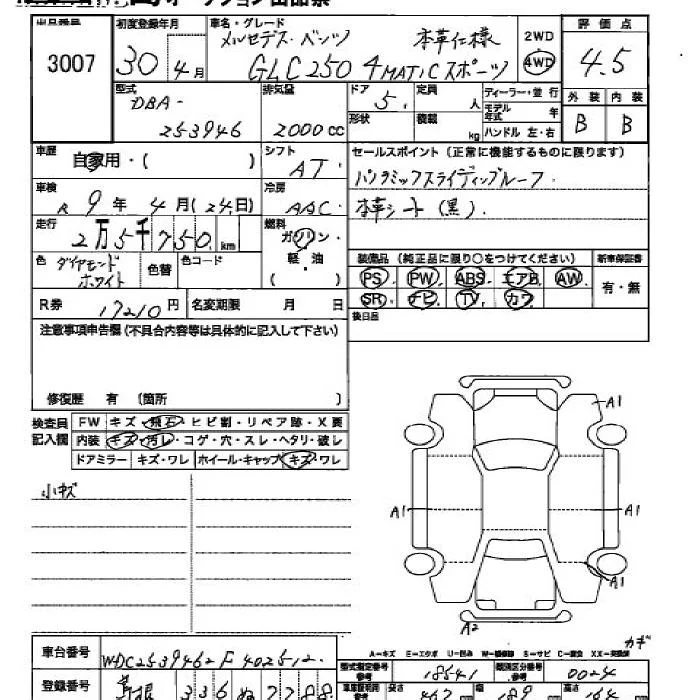 出品番号 初度登録年月 車名・グレード 評価点
3007 30年4月 メルセデス・ベンツ 本革仕様 2WD 4.5
GLC250 4MATICスポーツ 4WD
型式 排気量 ドア 定員 ディーラー・並行 外装 内装
DBA- 5 人 モデル年式 年 B B
253946 2000cc 形状 積載 kg ハンドル 左・右
車歴 自家用・( ) シフト AT セールスポイント (正常に機能するものに限ります)
車検 R 9年4月(24日) 冷房 AAC パノラミックスライディングルーフ.
走行 2万5千750km 燃料 ガソリン・軽油 ( ) 本革シート(黒).
色 ダイヤモンドホワイト 色替 色コード 装備品 (純正品に限り○をつけてください) 新車保証書
PS PW ABS エアB AW 有・無
R券 17210円 名変期限 月 日 SR ナビ TV カワ
注意事項申告欄(不具合内容等は具体的に記入して下さい) 後日品
修復歴 有 (箇所 )
検査員記入欄 FW キズ・飛石・ヒビ割・リペア跡・X要
内装 キズ・汚レ・コゲ・穴・スレ・ヘタリ・破レ
ドアミラー キズ・ワレ ホイール・キャップ キズ・ワレ
小キズ
A1
A1 A1
A1
A2
カギ
車台番号 WDC2539462F402512.
型式指定番号 18541 類別区分番号 0024
登録番号 島根 336 7788
長さ 467 幅 189 高さ 164